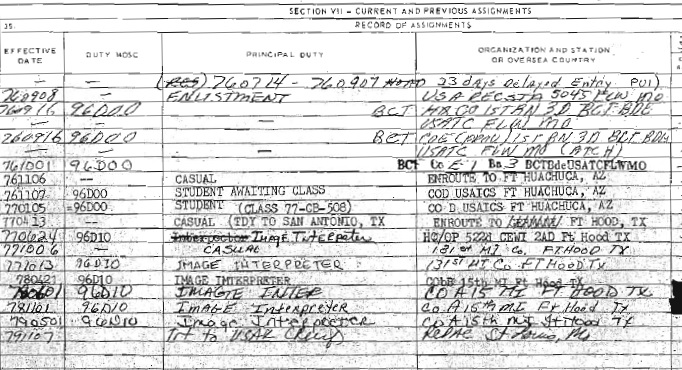 SECTION VII - CURRENT AND PREVIOUS ASSIGNMENTS
35. RECORD OF ASSIGNMENTS
EFFECTIVE DATE DUTY MOSC PRINCIPAL DUTY ORGANIZATION AND STATION OR OVERSEA COUNTRY
— — (RES) 760714 - 760907 23 days Delayed Entry
760908 — ENLISTMENT USA RECSTA 5045 FLW MO
760916 96D00 BCT 1ST BN 3D BCT BDE
— — — USATC FLW MO
760916 96D00 BCT 1ST BN 3D BCT BDE
— — — USATC FLW MO (ATCH)
761001 96D00 BCT Co E-1 Bn 3 BCTBdeUSATCFLWMO
761106 — CASUAL ENROUTE TO FT HUACHUCA, AZ
761107 96D00 STUDENT AWAITING CLASS COD USAICS FT HUACHUCA, AZ
770105 96D00 STUDENT (CLASS 77-CB-508) CO D USAICS FT HUACHUCA, AZ
770413 — CASUAL (TDY TO SAN ANTONIO, TX ENROUTE TO FT HOOD, TX
770624 96D10 Interpreter Image Interpeter HC/OP 522d CEWI 2AD Ft Hood TX
771006 — CASUAL 131st MI Co. FT HOOD TX
771013 96D10 IMAGE INTERPRETER 131st MI Co FT Hood Tx
780421 96D10 IMAGE INTERPRETER 15th MI Ft Hood Tx
780601 96D10 IMAGE INTER CO A 15 FT HOOD TX
781101 96D10 IMAGE Interpreter Co A 15th MI Ft Hood Tx
790501 96D10 Image Interpreter Co A 15th MI Ft Hood Tx
791107 Trf to USAR St Louis, Mo